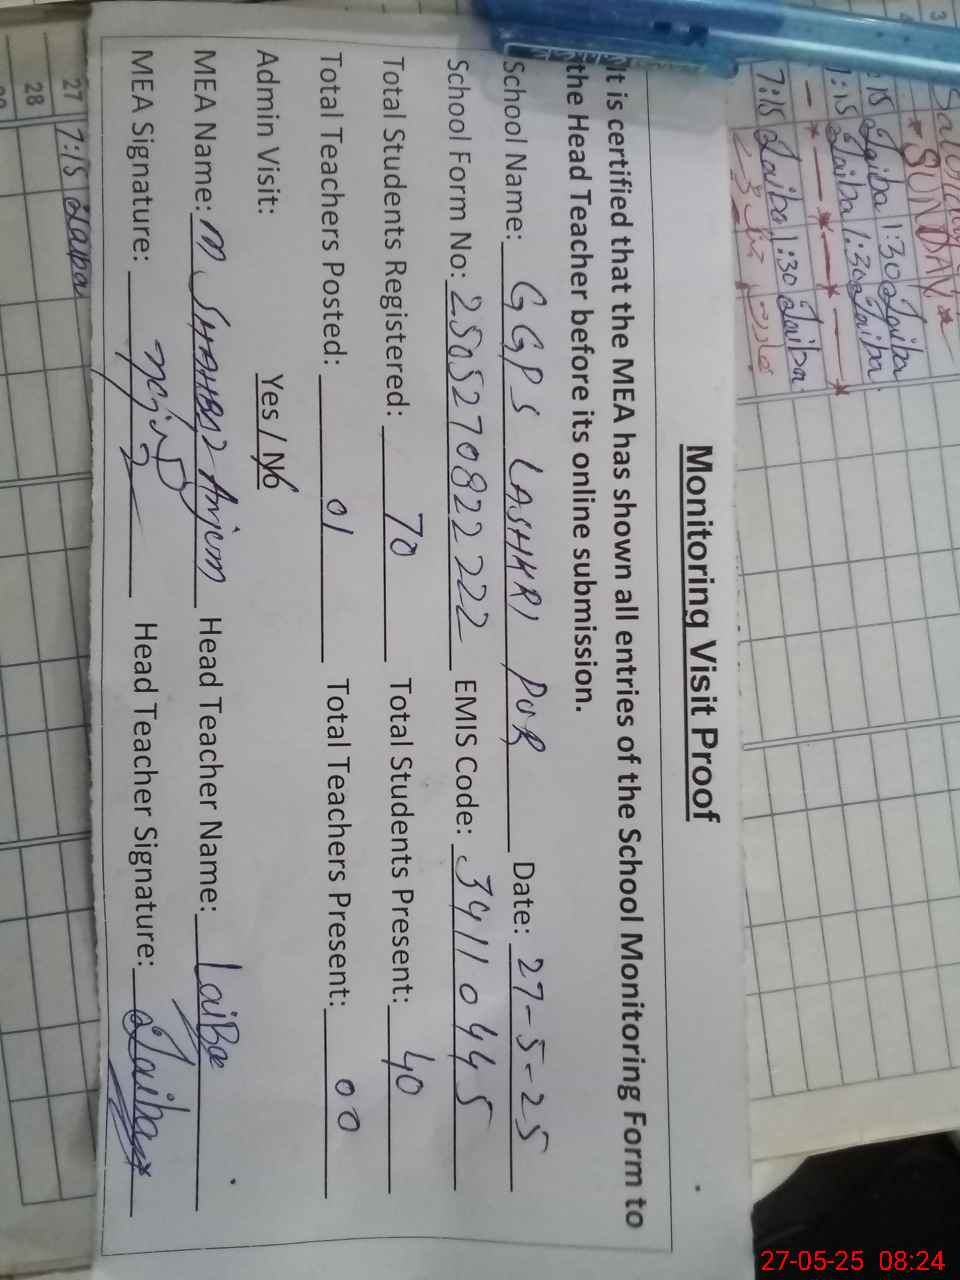 Monitoring Visit Proof
It is certified that the MEA has shown all entries of the School Monitoring Form to
the Head Teacher before its online submission.
School Name: GGPS LASHKRI PUR Date: 27-5-25
School Form No: 2505270822222 EMIS Code: 34110445
Total Students Registered: 70 Total Students Present: 40
Total Teachers Posted: 01 Total Teachers Present: 00
Admin Visit: Yes / No
MEA Name: M SHAHBAZ Anjum Head Teacher Name: LaiBa
MEA Signature: Head Teacher Signature: Laiba
3
4
Saturday
*SUNDAY*
:15 Laiba 1:30 Laiba
1:15 Laiba 1:30 Laiba
7:15 Laiba 1:30 Laiba
27 7:15 Laiba
28
27-05-25 08:24